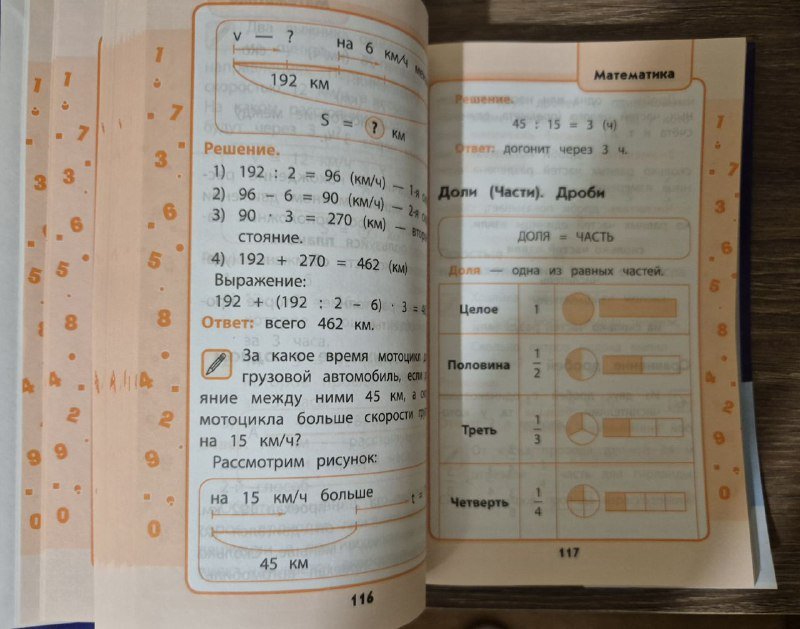 v — ? на 6 км/ч
192 км
S = ? км
Решение.
1) 192 : 2 = 96 (км/ч) — 1-я
2) 96 – 6 = 90 (км/ч) — 2-я
3) 90 · 3 = 270 (км) —
стояние.
4) 192 + 270 = 462 (км)
Выражение:
192 + (192 : 2 – 6) · 3 =
Ответ: всего 462 км.
За какое время мотоцикл
грузовой автомобиль, если
яние между ними 45 км, а
мотоцикла больше скорости
на 15 км/ч?
Рассмотрим рисунок:
на 15 км/ч больше t =
45 км
116
Математика
Решение.
45 : 15 = 3 (ч)
Ответ: догонит через 3 ч.
Доли (Части). Дроби
ДОЛЯ = ЧАСТЬ
Доля — одна из равных частей.
Целое 1
Половина 1/2
Треть 1/3
Четверть 1/4
117